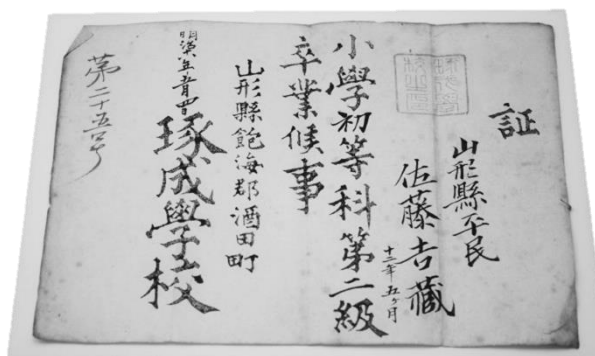 証
山形縣平民
佐藤吉藏
十二年五ヶ月
小學初等科第二級
卒業候事
山形縣飽海郡酒田町
琢成學校
第二十五号